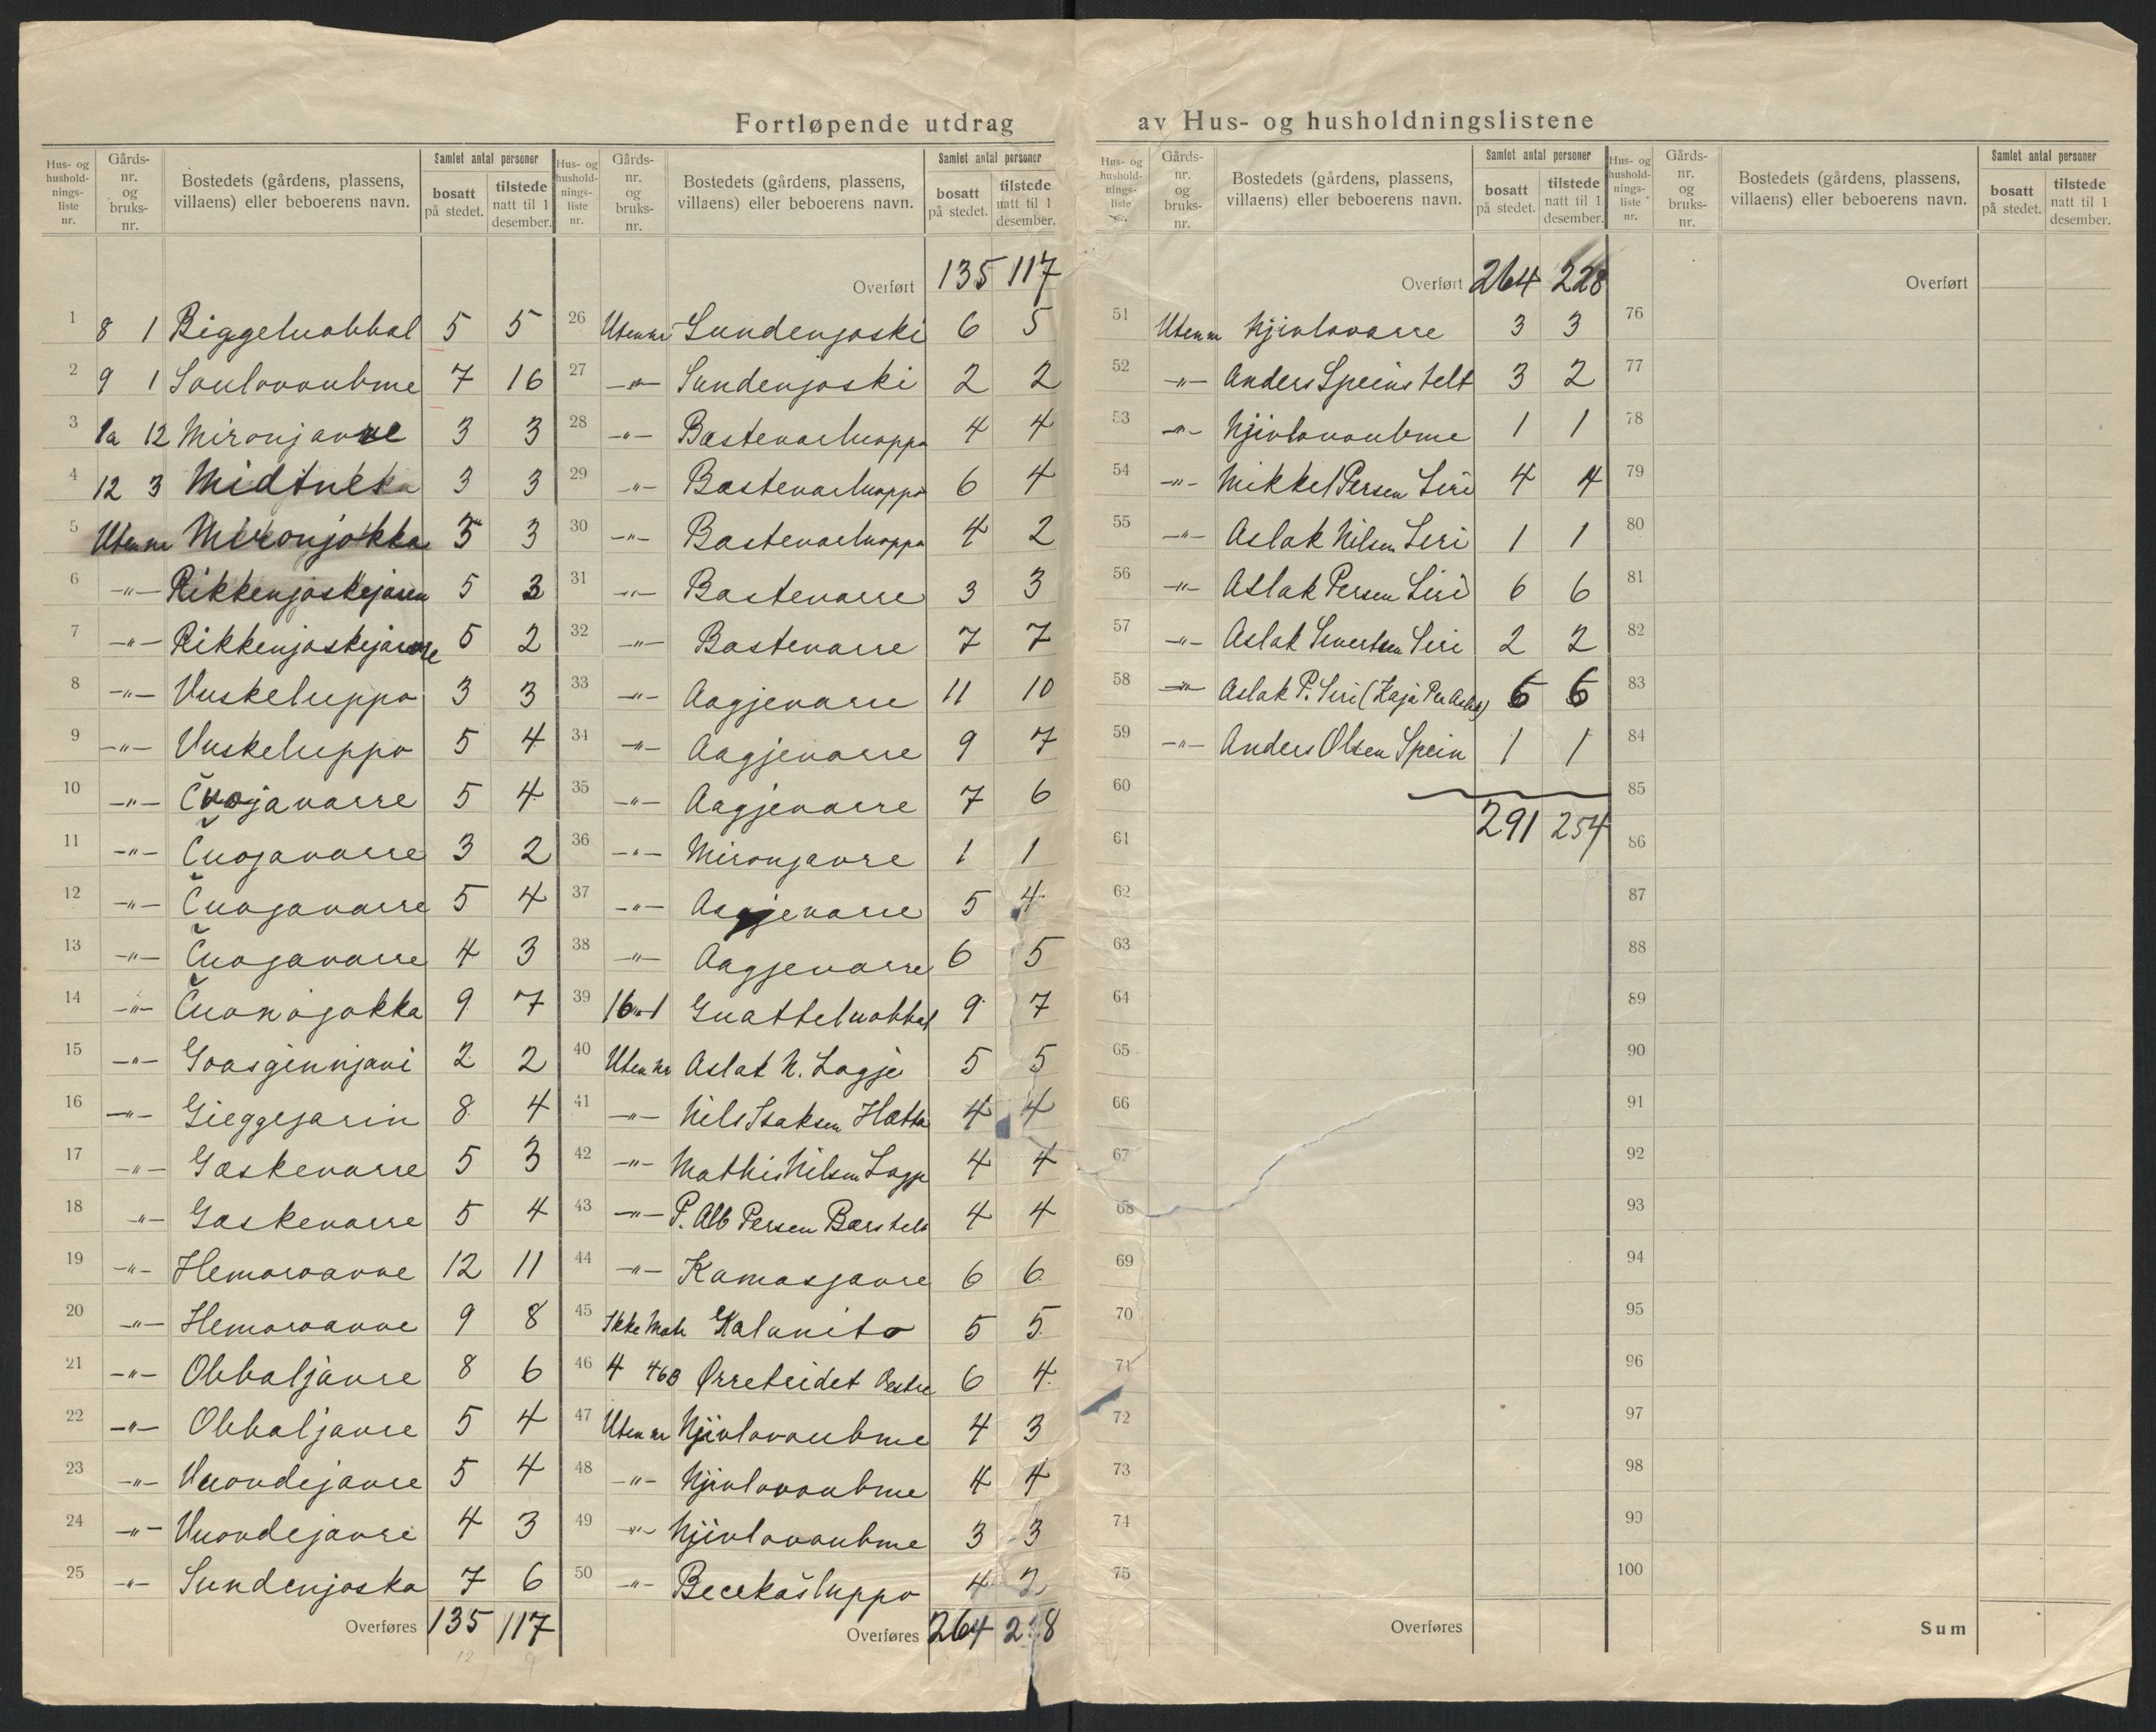 Fortløpende utdrag av Hus- og husholdningslistene
Hus- og hushold-nings-liste nr. Gårds-nr. og bruks-nr. Bostedets (gårdens, plassens, villaens) eller beboerens navn. Samlet antal personer bosatt på stedet. tilstede natt til 1 desember.
1 8 1 Biggeluobbal 5 5
2 9 1 Soulovoubme 7 16
3 1a 12 Mironjavre 3 3
4 12 3 Midtnes 3 3
5 Uten nr Mironjokka 3 3
6 -"- Rikkenjaskejaren 5 3
7 -"- Rikkenjaskejavre 5 2
8 -"- Vuskeluppo 3 3
9 -"- Vuskeluppo 5 4
10 -"- Čuojavarre 5 4
11 -"- Čuojavarre 3 2
12 -"- Čuojavarre 5 4
13 -"- Čuojavarre 4 3
14 -"- Čuonojokka 9 7
15 -"- Goasginnjavi 2 2
16 -"- Gieggejarin 8 4
17 -"- Gaskevarre 5 3
18 -"- Gaskevarre 5 4
19 -"- Hemoroavve 12 11
20 -"- Hemoroavve 9 8
21 -"- Obbaljavre 8 6
22 -"- Obbaljavre 5 4
23 -"- Vuovdejavre 5 4
24 -"- Vuovdejavre 4 3
25 -"- Sundenjaska 7 6
Overføres 135 117
12 9
Hus- og hushold-nings-liste nr. Gårds-nr. og bruks-nr. Bostedets (gårdens, plassens, villaens) eller beboerens navn. Samlet antal personer bosatt på stedet. tilstede natt til 1 desember.
Overført 135 117
26 Uten nr Sundenjaski 6 5
27 -"- Sundenjaski 2 2
28 -"- Bastevarluoppo 4 4
29 -"- Bastevarluoppo 6 4
30 -"- Bastevarluoppo 4 2
31 -"- Bastevarre 3 3
32 -"- Bastevarre 7 7
33 -"- Aagjevarre 11 10
34 -"- Aagjevarre 9 7
35 -"- Aagjevarre 7 6
36 -"- Mironjavre 1 1
37 -"- Aagjevarre 5 4
38 -"- Aagjevarre 6 5
39 16 1 Guatteluobbal 9 7
40 Uten nr Aslak N. Logje 5 5
41 -"- Nils Isaksen Hætta 4 4
42 -"- Mathis Nilsen Logje 4 4
43 -"- P. Alb Persen Bærs telt 4 4
44 -"- Kamasjavre 6 6
45 Ikke Matr Galanito 5 5
46 4 46B Ørreteidet Østre 6 4
47 Uten nr Njivlovoubme 4 3
48 -"- Njivlovoubme 4 4
49 -"- Njivlovoubme 3 3
50 -"- Becekašluppo 4 2
Overføres 264 228
Hus- og hushold-nings-liste nr. Gårds-nr. og bruks-nr. Bostedets (gårdens, plassens, villaens) eller beboerens navn. Samlet antal personer bosatt på stedet. tilstede natt til 1 desember.
Overført 264 228
51 Uten nr Njivlovarre 3 3
52 -"- Anders Speins telt 3 2
53 -"- Njivlovoubme 1 1
54 -"- Mikkel Persen Siri 4 4
55 -"- Aslak Nilsen Siri 1 1
56 -"- Aslak Persen Siri 6 6
57 -"- Aslak Sivertsen Siri 2 2
58 -"- Aslak P. Siri (Kaja Per Aslak) 6 6
59 -"- Anders Olsen Spein 1 1
60
291 254
61
62
63
64
65
66
67
68
69
70
71
72
73
74
75
Overføres
Hus- og hushold-nings-liste nr. Gårds-nr. og bruks-nr. Bostedets (gårdens, plassens, villaens) eller beboerens navn. Samlet antal personer bosatt på stedet. tilstede natt til 1 desember.
Overført
76
77
78
79
80
81
82
83
84
85
86
87
88
89
90
91
92
93
94
95
96
97
98
99
100
Sum